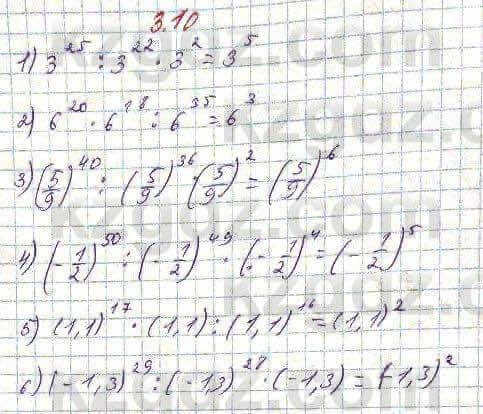 3.10
1) 3^25 : 3^22 · 3^2 = 3^5
2) 6^20 · 6^18 : 6^35 = 6^3
3) (5/9)^40 : (5/9)^36 · (5/9)^2 = (5/9)^6
4) (-1/2)^50 : (-1/2)^49 · (-1/2)^4 = (-1/2)^5
5) (1,1)^17 · (1,1) : (1,1)^16 = (1,1)^2
6) (-1,3)^29 : (-1,3)^28 · (-1,3) = (-1,3)^2